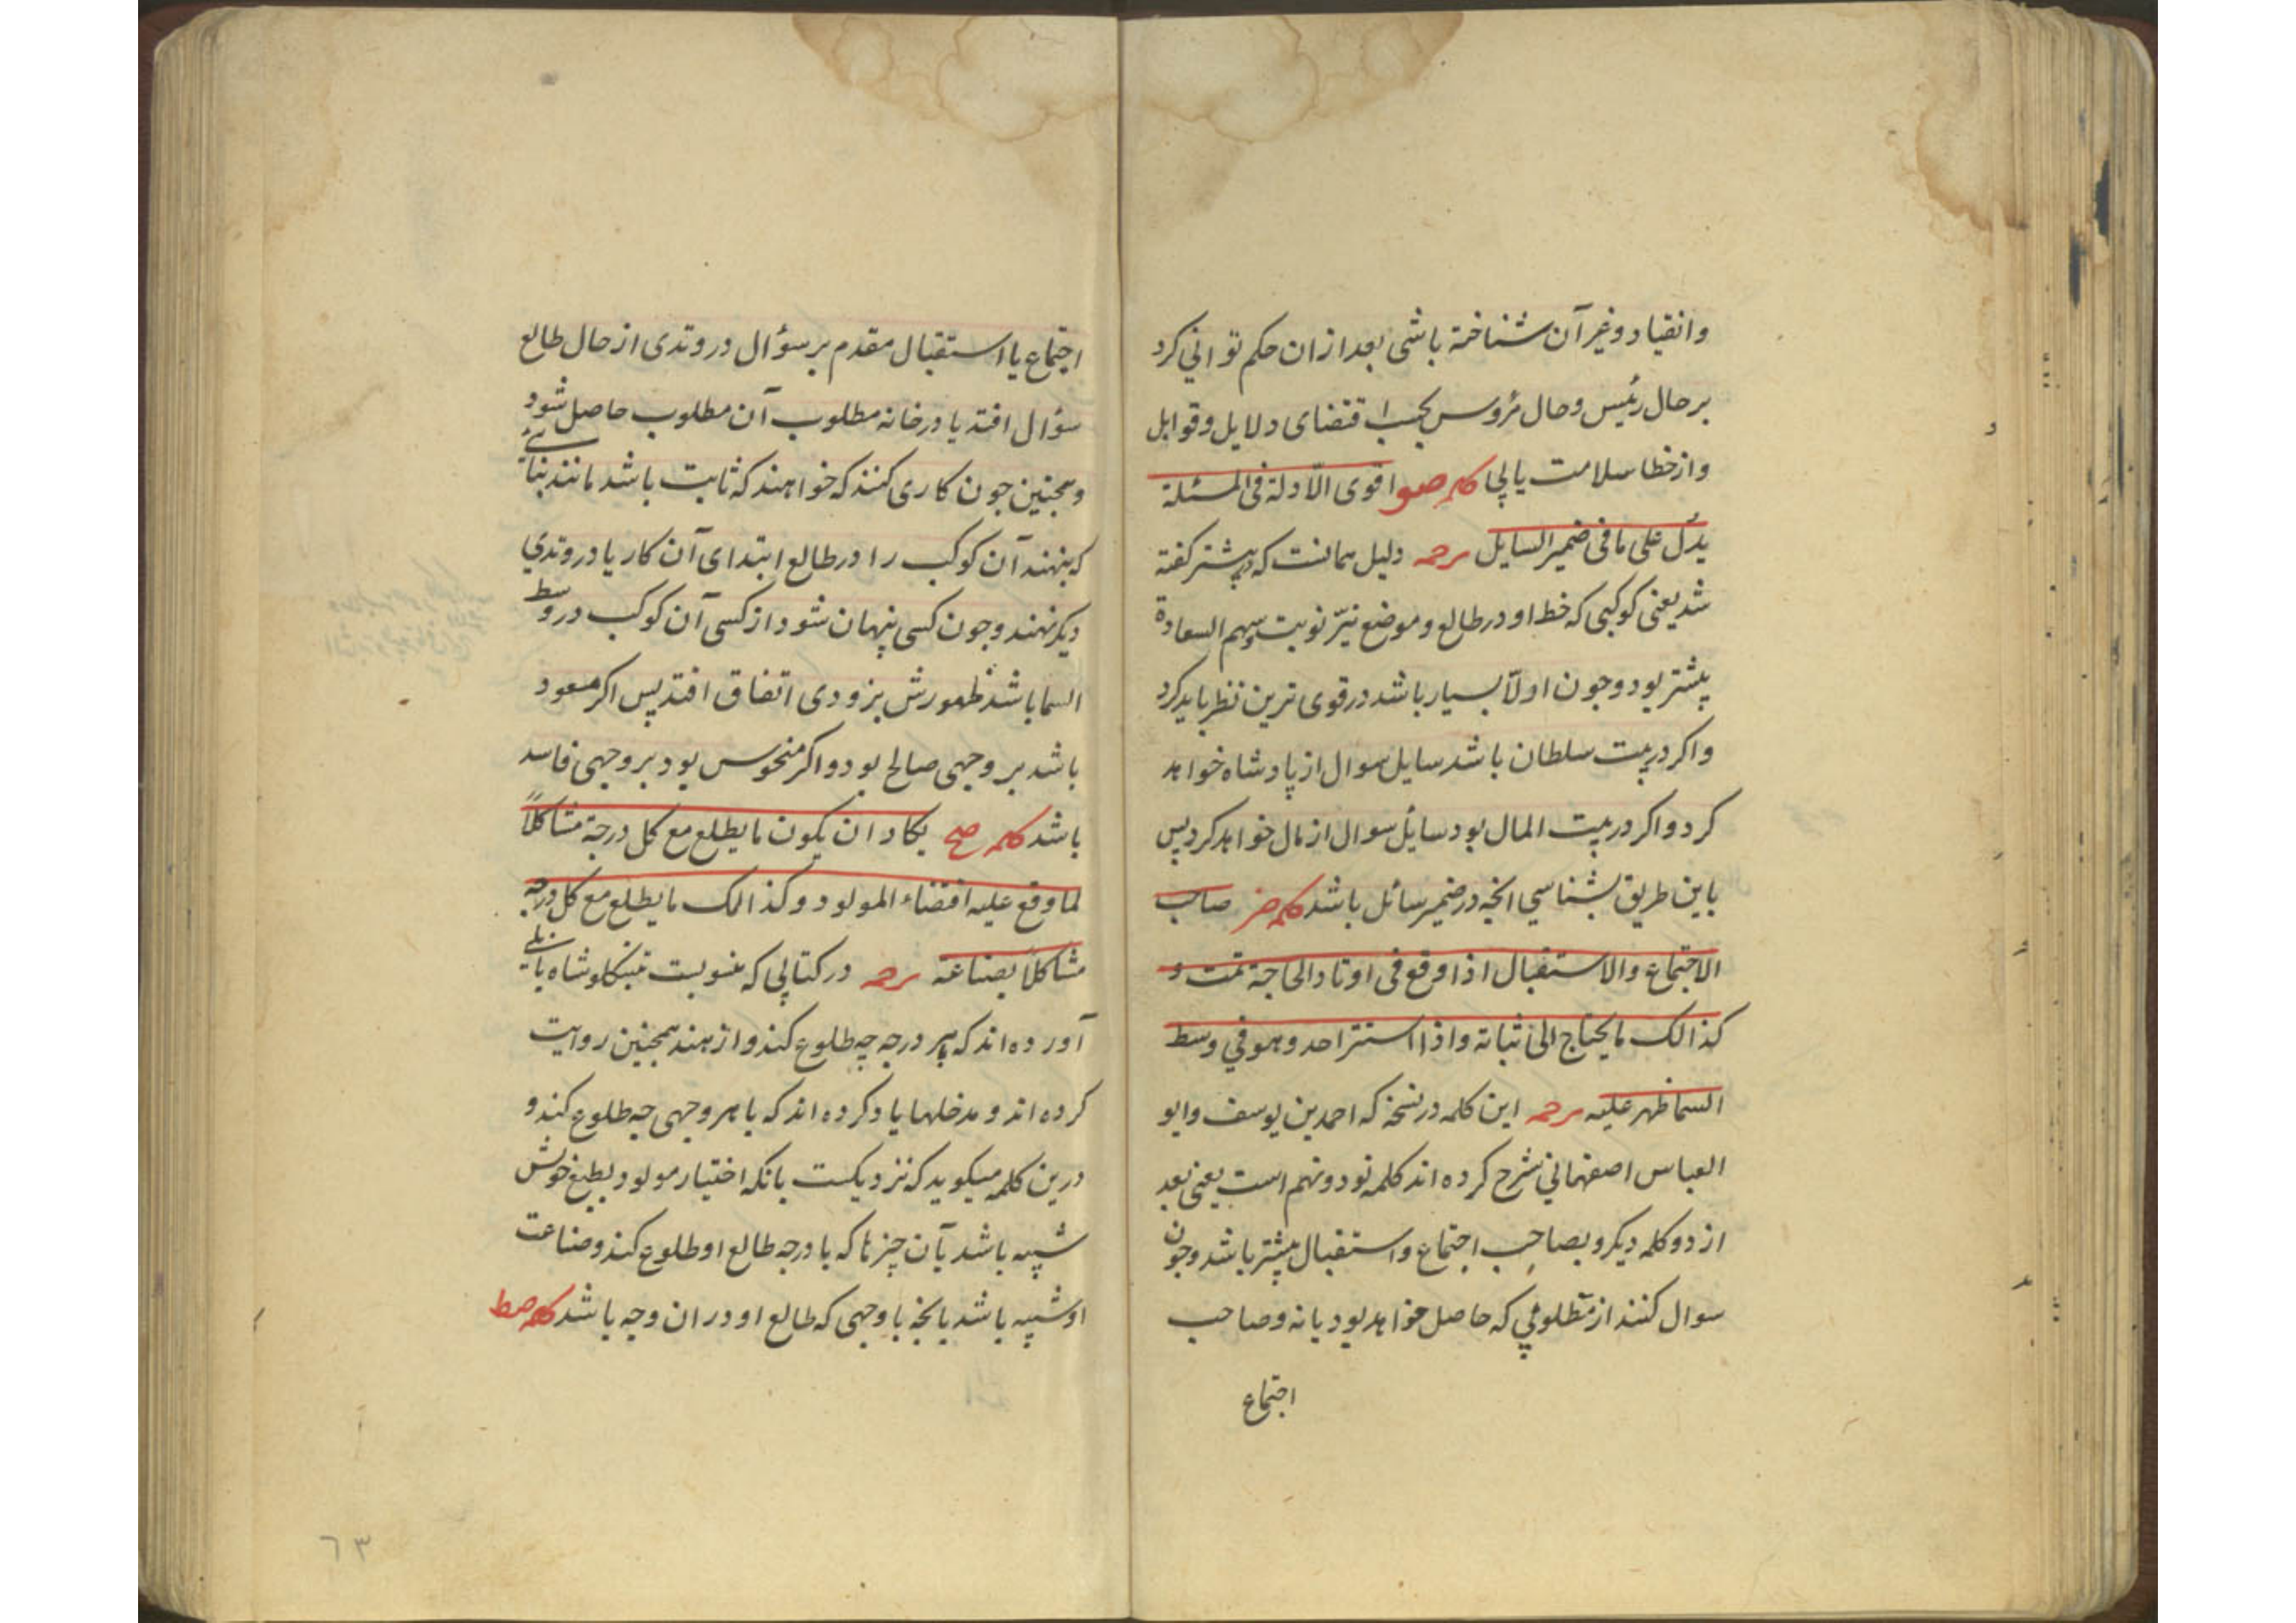 وانقیاد و غیر آن شناخته باشی بعد از ان حکم توانی کرد
بر حال رئیس و حال مرؤوس بحسب اقتضای دلایل و قوابل
و از خطا سلامت یابی کلمه صو اقوی الأدلة فی المسئلة
یدل علی ما فی ضمیر السایل ترجمه دلیل همانست که پیشتر کفته
شد یعنی کوکبی که خط او در طالع و موضع نیّر نوبت و سهم السعادة
بیشتر بود و چون اولا بسیار باشد در قوی ترین نظر باید کرد
و اکر در بیت سلطان باشد سایل سوال از پادشاه خواهد
کرد و اکر در بیت المال بود سایل سوال از مال خواهد کرد پس
باین طریق بشناسی انچه در ضمیر سائل باشد کلمه صز صاحب
الاجتماع والاستقبال اذا وقع فی اوتاد الحاجة تمت و
کذالک ما یحتاج الی ثباته و اذا استتر احد و هو في وسط
السما ظهر علیه ترجمه این کلمه در نسخه که احمد بن یوسف و ابو
العباس اصفهانی شرح کرده اند کلمه نود و نهم است یعنی بعد
از دو کلمه دیکر و بصاحب اجتماع و استقبال بیشتر باشد و چون
سوال کنند از مطلوبی که حاصل خواهد بود یا نه و صاحب
اجتماع
اجتماع یا استقبال مقدم بر سؤال در وتدی از حال طالع
سؤال افتد یا در خانه مطلوب آن مطلوب حاصل شود
و همچنین چون کاری کنند که خواهند که ثابت باشد مانند بنائی
که بنهند آن کوکب را در طالع ابتدای آن کار یا در وتدي
دیکر نهند و چون کسی پنهان شود از کسی آن کوکب در وسط
السما باشد ظهورش بزودی اتفاق افتد پس اکر مسعود
باشد بر وجهی صالح بود و اکر منحوس بود بر وجهی فاسد
باشد کلمه صح یکاد ان یکون ما یطلع مع کل درجة مشاکلاً
لما وقع علیه اقتضاء المولود و کذالک ما یطلع مع کل درجه
مشاکلا بصناعته ترجمه در کتابی که منسوبست تینکلوشاه بابلی
آورده اند که بهر درجه چه طلوع کند و از هند همچنین روایت
کرده اند و مدخلها یاد کرده اند که با هر وجهی چه طلوع کند و
درین کلمه میکوید که نزدیکست بانکه اختیار مولود بطبع خویش
شبیه باشد بآن چیزها که با درجه طالع او طلوع کند و صناعت
او شبیه باشد بانچه با وجهی که طالع او در ان وجه باشد کلمه صط
٦٣